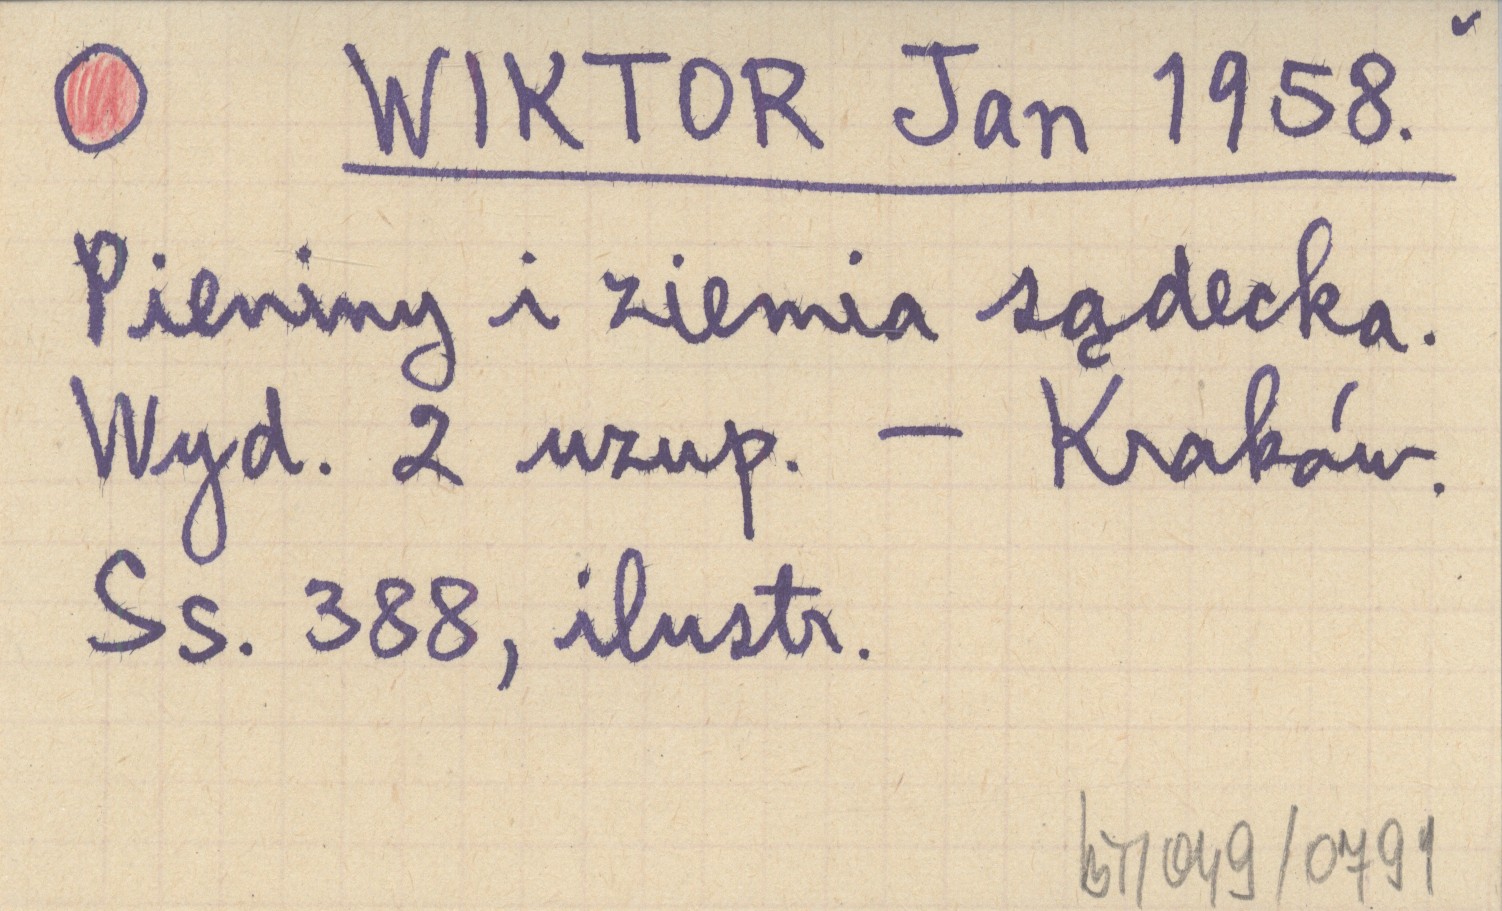 WIKTOR Jan 1958.
Pieniny i ziemia sądecka.
Wyd. 2 uzup. – Kraków.
Ss. 388, ilustr.
049/0791